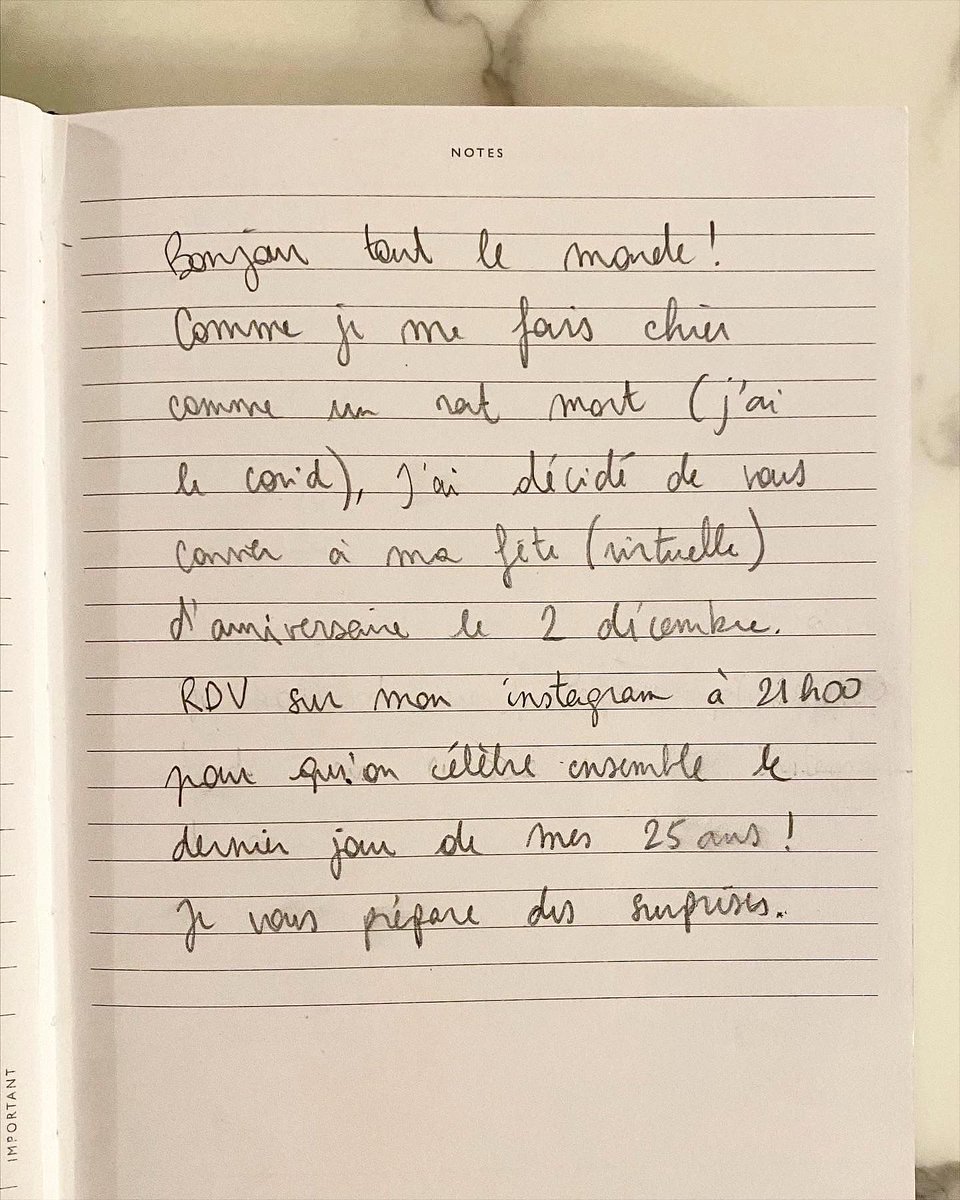 NOTES
Bonjour tout le monde !
Comme je me fais chier
comme un rat mort (j'ai
le covid), j'ai décidé de vous
convier à ma fête (virtuelle)
d'anniversaire le 2 décembre.
RDV sur mon instagram à 21h00
pour qu'on célèbre ensemble le
dernier jour de mes 25 ans !
Je vous prépare des surprises.
IMPORTANT